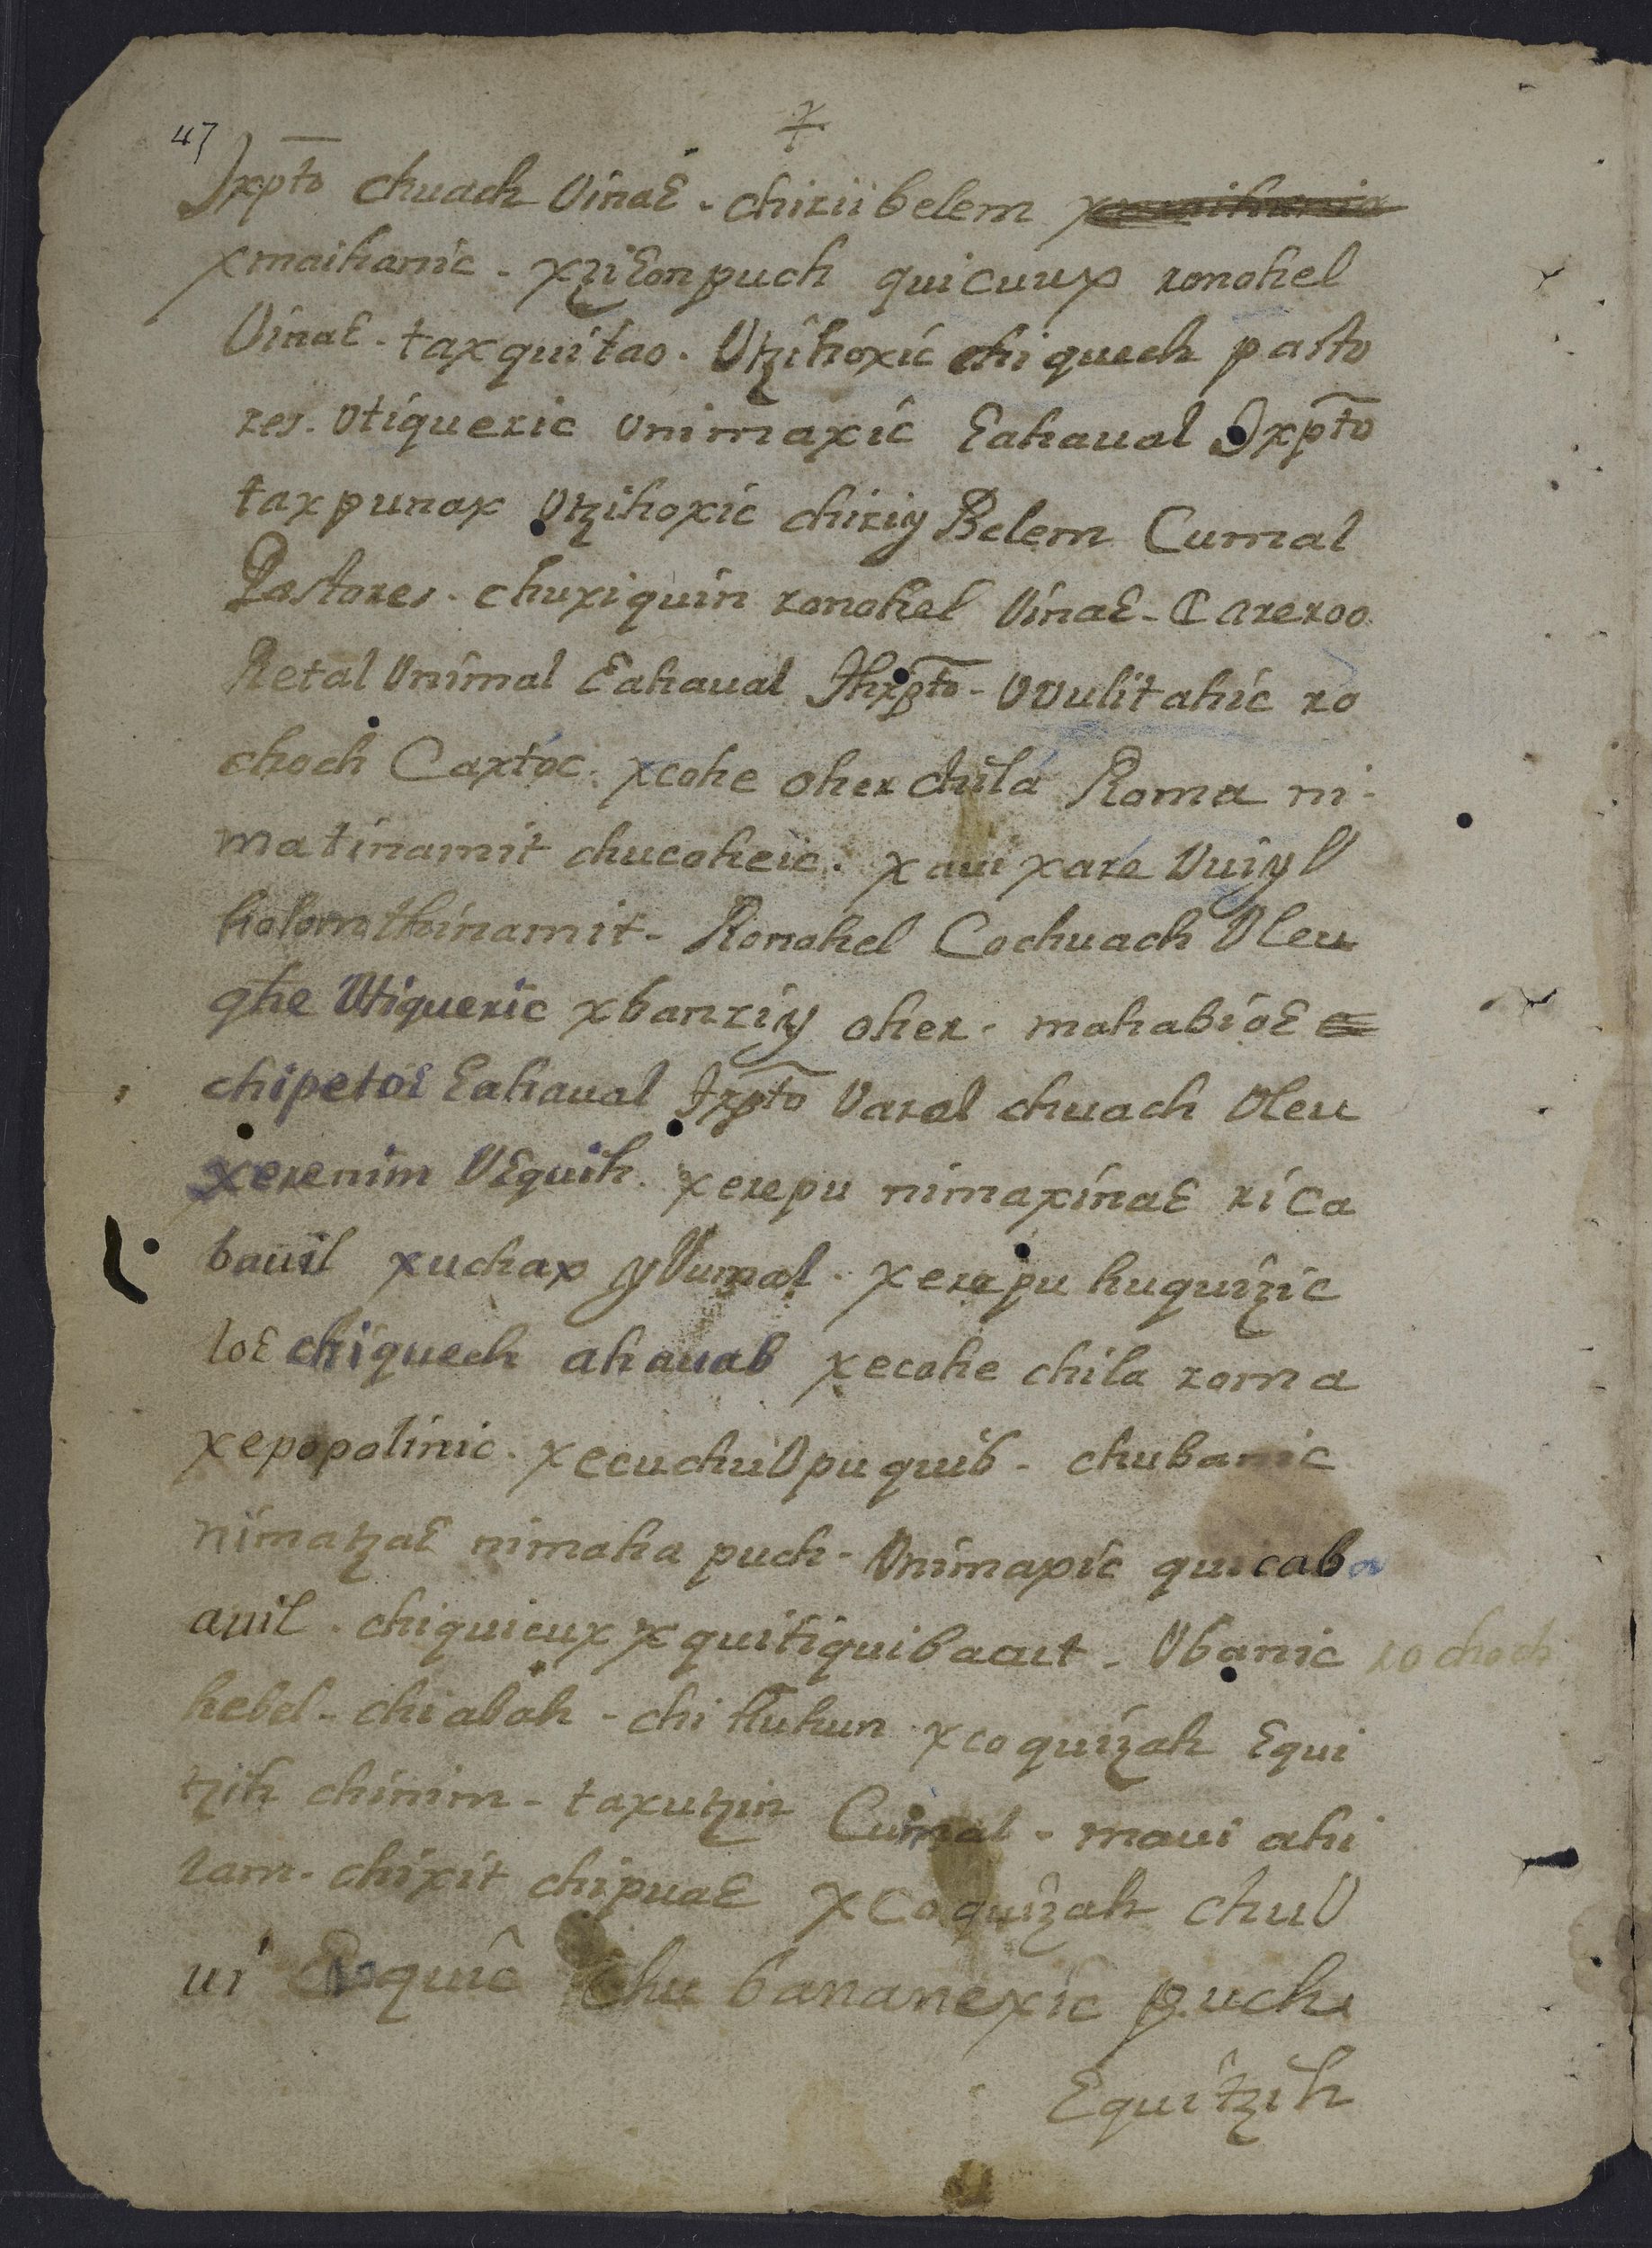 47
Jxpto chuach Vinaɛ - chirii belem
xmaihanic - xziɛon puch quicuux ronohel
Vinaɛ - taxquitao. Vtzihoxic chi quech pasto
res. Vtiqueric Vnimaxic ɛahaual Jxpto
taxpunax Vtzihoxic chiriy Belem Cumal
Pastores - chuxiquin ronohel Vinaɛ - C areroo
Retal Vnimal ɛahaual Jhxpto - Vvulitahic ro
choch Caxtoc. xcohe oher chila Roma ni-
ma tinamit chucoheic. xaui xare Vuiy V
holom thinamit - Ronohel Cochuach Vleu
qhe Vtiqueric xbanriy oher - mahabioɛ
chipetoɛ ɛahaual Jxpto Varal chuach Vleu
xerenim Vɛquih. xerepu nimaxinaɛ ri Ca
bauil xuchax yVumal. xerepu huquizic
loɛ chiquech ahauab xecohe chila roma
xepopolinic. xecuchuVpu quib - chubanic
nimatzaɛ nimaha puch - Vnimaxic quicaba
auil. chiquicux xquitiquibaaut - Vbanic rochoch
hebel - chi abah - chi huhun xcoquizah ɛqui
tzih chinim - taxutzin Cumal - maui ahi
lam. chixit chipuaɛ xcoquizah chuV
ui quic chu bananexic puch
ɛquitzih